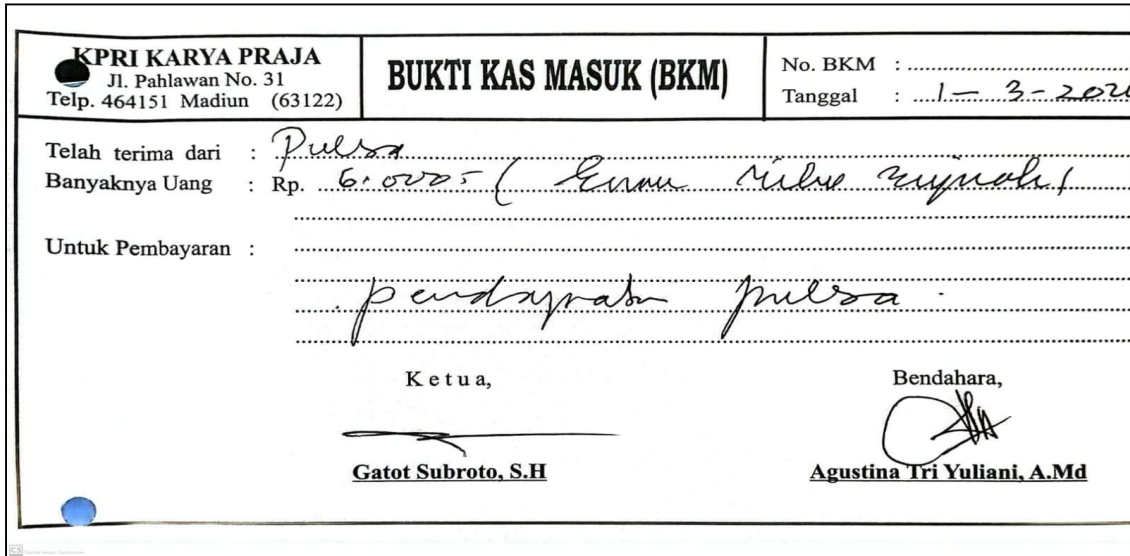 KPRI KARYA PRAJA
Jl. Pahlawan No. 31
Telp. 464151 Madiun (63122)
BUKTI KAS MASUK (BKM)
No. BKM :
Tanggal : 1 - 3 - 202
Telah terima dari : Pulsa
Banyaknya Uang : Rp. 6.000 - ( Enam ribu rupiah )
Untuk Pembayaran :
pendapatan pulsa .
Ketua,
Bendahara,
Gatot Subroto, S.H
Agustina Tri Yuliani, A.Md
CS